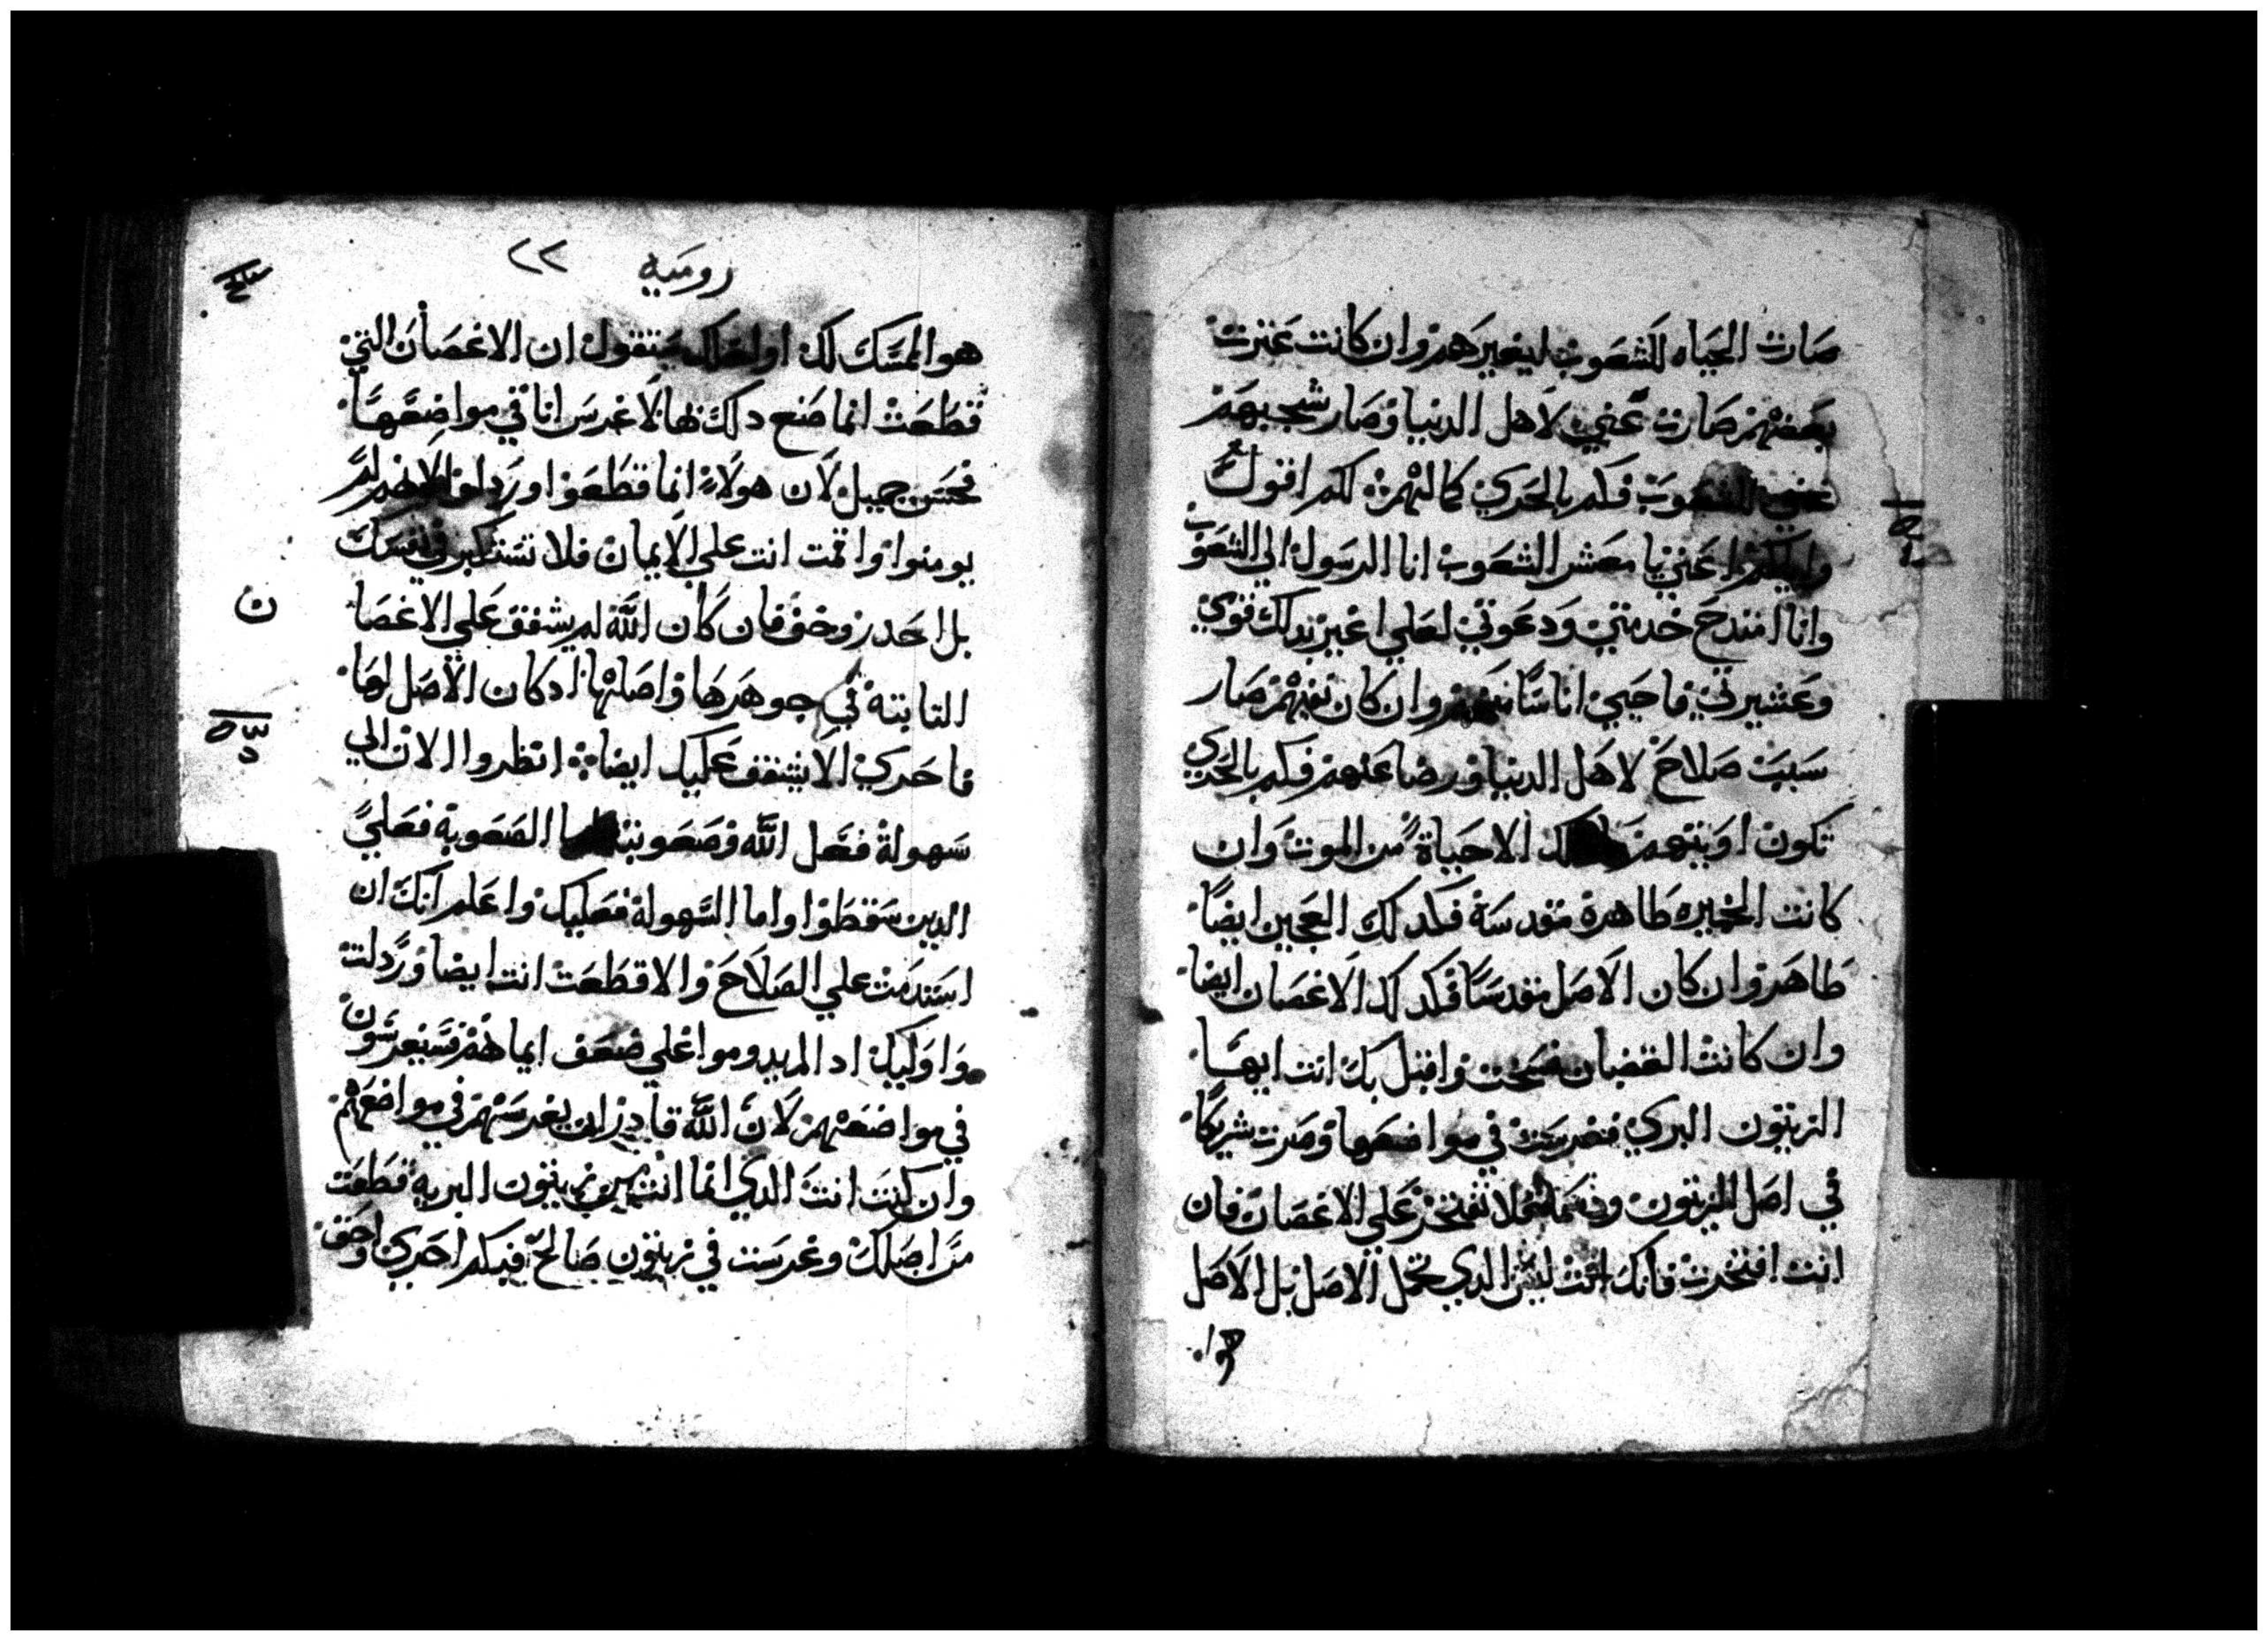 صارت الحياه للشعوب ليغيرهم وان كانت عترت
بعضهم صارت غني لاهل الدنيا وصار شجبهم
غني للشعوب فكم بالحري كمالهم لكم اقول
واياكم اعني يا معشر الشعوب انا الرسول الي الشعوب
وانا امتدح خدمتي ودعوتي لعلي اغير بدلك دوي
وعشيرتي فاحيي اناسا منهم وان كان نفيهم صار
سبب صلاح لاهل الدنيا ورضا عنهم فكم بالحري
تكون اوبتهم الا حياة من الموت وان
كانت الخميره طاهرة مقدسة فكدلك العجين ايضا
طاهر وان كان الاصل مقدسا فكدلك الاغصان ايضا
وان كانت القضبان فسخت واقبل بك انت ايها
الزيتون البري فغرست في مواضعها وصرت شريكا
في اصل الزيتون ودسمه لا تفتخر علي الاغصان فان
انت افتخرت فانك انت ليس الدي تحمل الاصل بل الاصل
هوا
روميه ٢٢
هو الممسك لك او لعلك ستقول ان الاغصان التي
قطعت انما صنع دلك بها لاغرس انا في مواضعها
فحسن جميل لان هولاء انما قطعوا وردلوا لانهم لم
يومنوا واقمت انت علي الايمان فلا تستكبر في نفسك
بل احدر وخف فان كان الله لم يشفق علي الاغصا
النابتة في جوهرها واصلها اد كان الاصل لها
فاحري الا يشفق عليك ايضا انظروا الان الي
سهولة فعل الله وصعوبته اما الصعوبة فعلي
الدين سقطوا واما السهولة فعليك واعلم انك ان
استدمت علي الصلاح والا قطعت انت ايضا وردلت
واوليك اد الم يدوموا علي ضعف ايمانهم فسيغرسون
في مواضعهم لان الله قادر ان يغرسهم في مواضعهم
وان كنت انت الدي انما انت من زيتون البريه قطعت
من اصلك وغرست في زيتون صالح فبكم احري واحق
ن